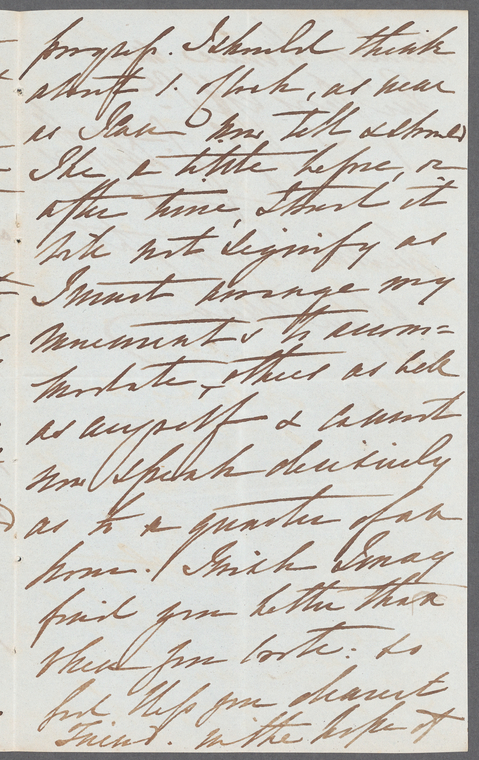 progress. I should think
about 1. o'clock, as near
as I can now tell & should
I be a little before, or
after time, I trust it
will not signify as
I must arrange my
movements to accom=
modate others as well
as myself & cannot
now speak decisively
as to a quarter of an
hour. I wish I may
find you better than
when you wrote: so
God bless you dearest
Friend. in the hope of